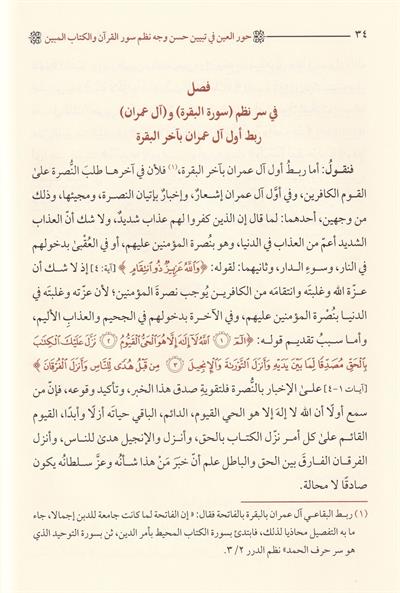 ٣٤ حور العين في تبيين حسن وجه نظم سور القرآن والكتاب المبين
فصل
في سر نظم (سورة البقرة) و(آل عمران)
ربط أول آل عمران بآخر البقرة
فنقول: أما ربطُ أول آل عمران بآخر البقرة،(١) فلأن في آخرها طلبَ النُّصرة علىٰ
القوم الكافرين، وفي أوَّل آل عمران إشعارٌ، وإخبارٌ بإتيان النصرة، ومجيئها، وذلك
من وجهين، أحدهما: لما قال إن الذين كفروا لهم عذاب شديدٌ، ولا شك أنَّ العذاب
الشديد أعمّ من العذاب في الدنيا، وهو بنُصْرة المؤمنين عليهم، أو في العُقْبىٰ بدخولهم
في النار، وسوءِ الدار، وثانيهما: لقوله: ﴿ وَٱللَّهُ عَزِيزٌ ذُو ٱنتِقَامٍ ﴾ [آية: ٤] إذ لا شك أن
عزّة الله وغلبتَه وانتقامَه من الكافرين يُوجب نصرةَ المؤمنين؛ لأن عزّته وغلبتَه في
الدنيا بنُصْرة المؤمنين عليهم، وفي الآخرة بدخولهم في الجحيم والعذاب الأليم،
وأما سببُ تقديم قوله: ﴿ الٓمٓ ۝١ ٱللَّهُ لَآ إِلَٰهَ إِلَّا هُوَ ٱلۡحَيُّ ٱلۡقَيُّومُ ۝٢ نَزَّلَ عَلَيۡكَ ٱلۡكِتَٰبَ
بِٱلۡحَقِّ مُصَدِّقًا لِّمَا بَيۡنَ يَدَيۡهِ وَأَنزَلَ ٱلتَّوۡرَىٰةَ وَٱلۡإِنجِيلَ ۝٣ مِن قَبۡلُ هُدًى لِّلنَّاسِ وَأَنزَلَ ٱلۡفُرۡقَانَ ﴾
[آيات ١-٤] علىٰ الإخبار بالنُّصرة فلتقوية صدق هذا الخبر، وتأكيد وقوعه، فإنّ من
سمع أولًا أن الله لا إله إلا هو الحي القيوم، الدائم، الباقي حياتَه أزلًا وأبدًا، القيوم
القائم علىٰ كل أمر نزّل الكتاب بالحق، وأنزل والإنجيل هدىً للناس، وأنزل
الفرقان الفارقَ بين الحق والباطل علم أنّ خبَرَ مَنْ هذا شأنُه وعزَّ سلطانُه يكون
صادقًا لا محالة.
(١) ربط البقاعي آل عمران بالبقرة بالفاتحة فقال: « إن الفاتحة لما كانت جامعة للدين إجمالا، جاء
ما به التفصيل محاذيا لذلك، فابتدئ بسورة الكتاب المحيط بأمر الدين، ثن بسورة التوحيد الذي
هو سر حرف الحمد» نظم الدرر ٢/ ٣.